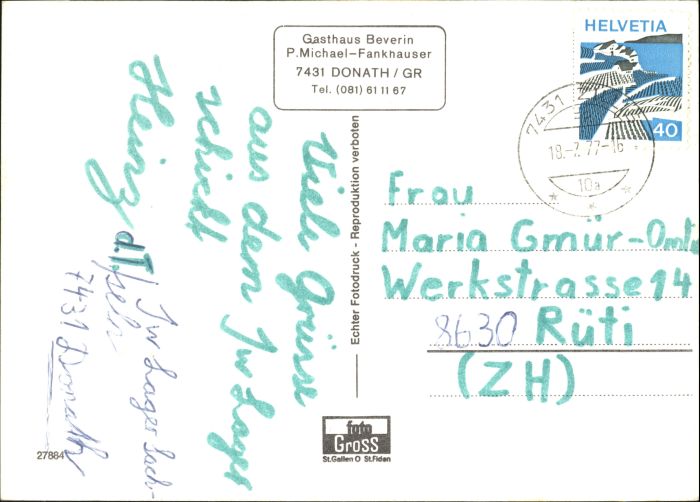 Gasthaus Beverin
P.Michael-Fankhauser
7431 DONATH / GR
Tel. (081) 61 11 67
HELVETIA
40
7431
18.-7.77-16
10a
Viele Grüsse
aus dem Jw Lager
schickt
Heinz
Jw Lager
7431 Donath
Echter Fotodruck - Reproduktion verboten
Frau
Maria Gmür-
Werkstrasse 14
8630 Rüti
(ZH)
foto
GROSS
St.Gallen O St.Fiden
27884